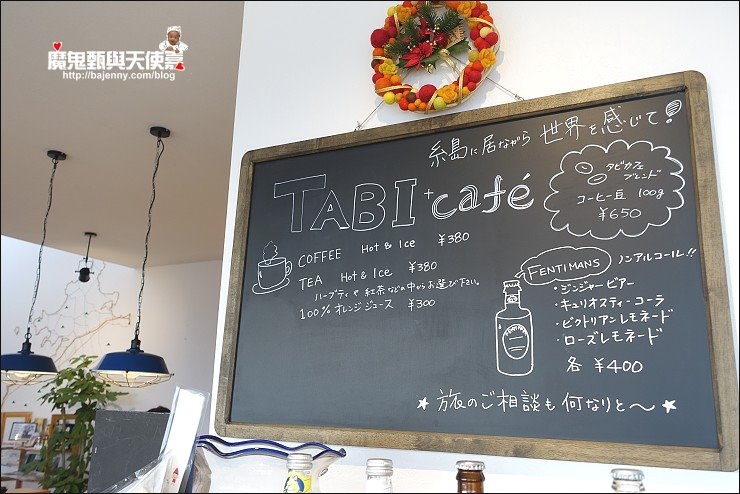 魔鬼甄與天使嘉
http://bajenny.com/blog
糸島に居ながら 世界を感じて!
TABI+café
タビカフェ
ブレンド
コーヒー豆 100g
¥650
COFFEE Hot & Ice ¥380
TEA Hot & Ice ¥380
ハーブティや紅茶などの中からお選び下さい。
100% オレンジジュース ¥300
FENTIMANS ノンアルコール!!
・ジンジャービアー
・キュリオスティーコーラ
・ビクトリアンレモネード
・ローズレモネード
各 ¥400
★ 旅のご相談も何なりと〜 ★